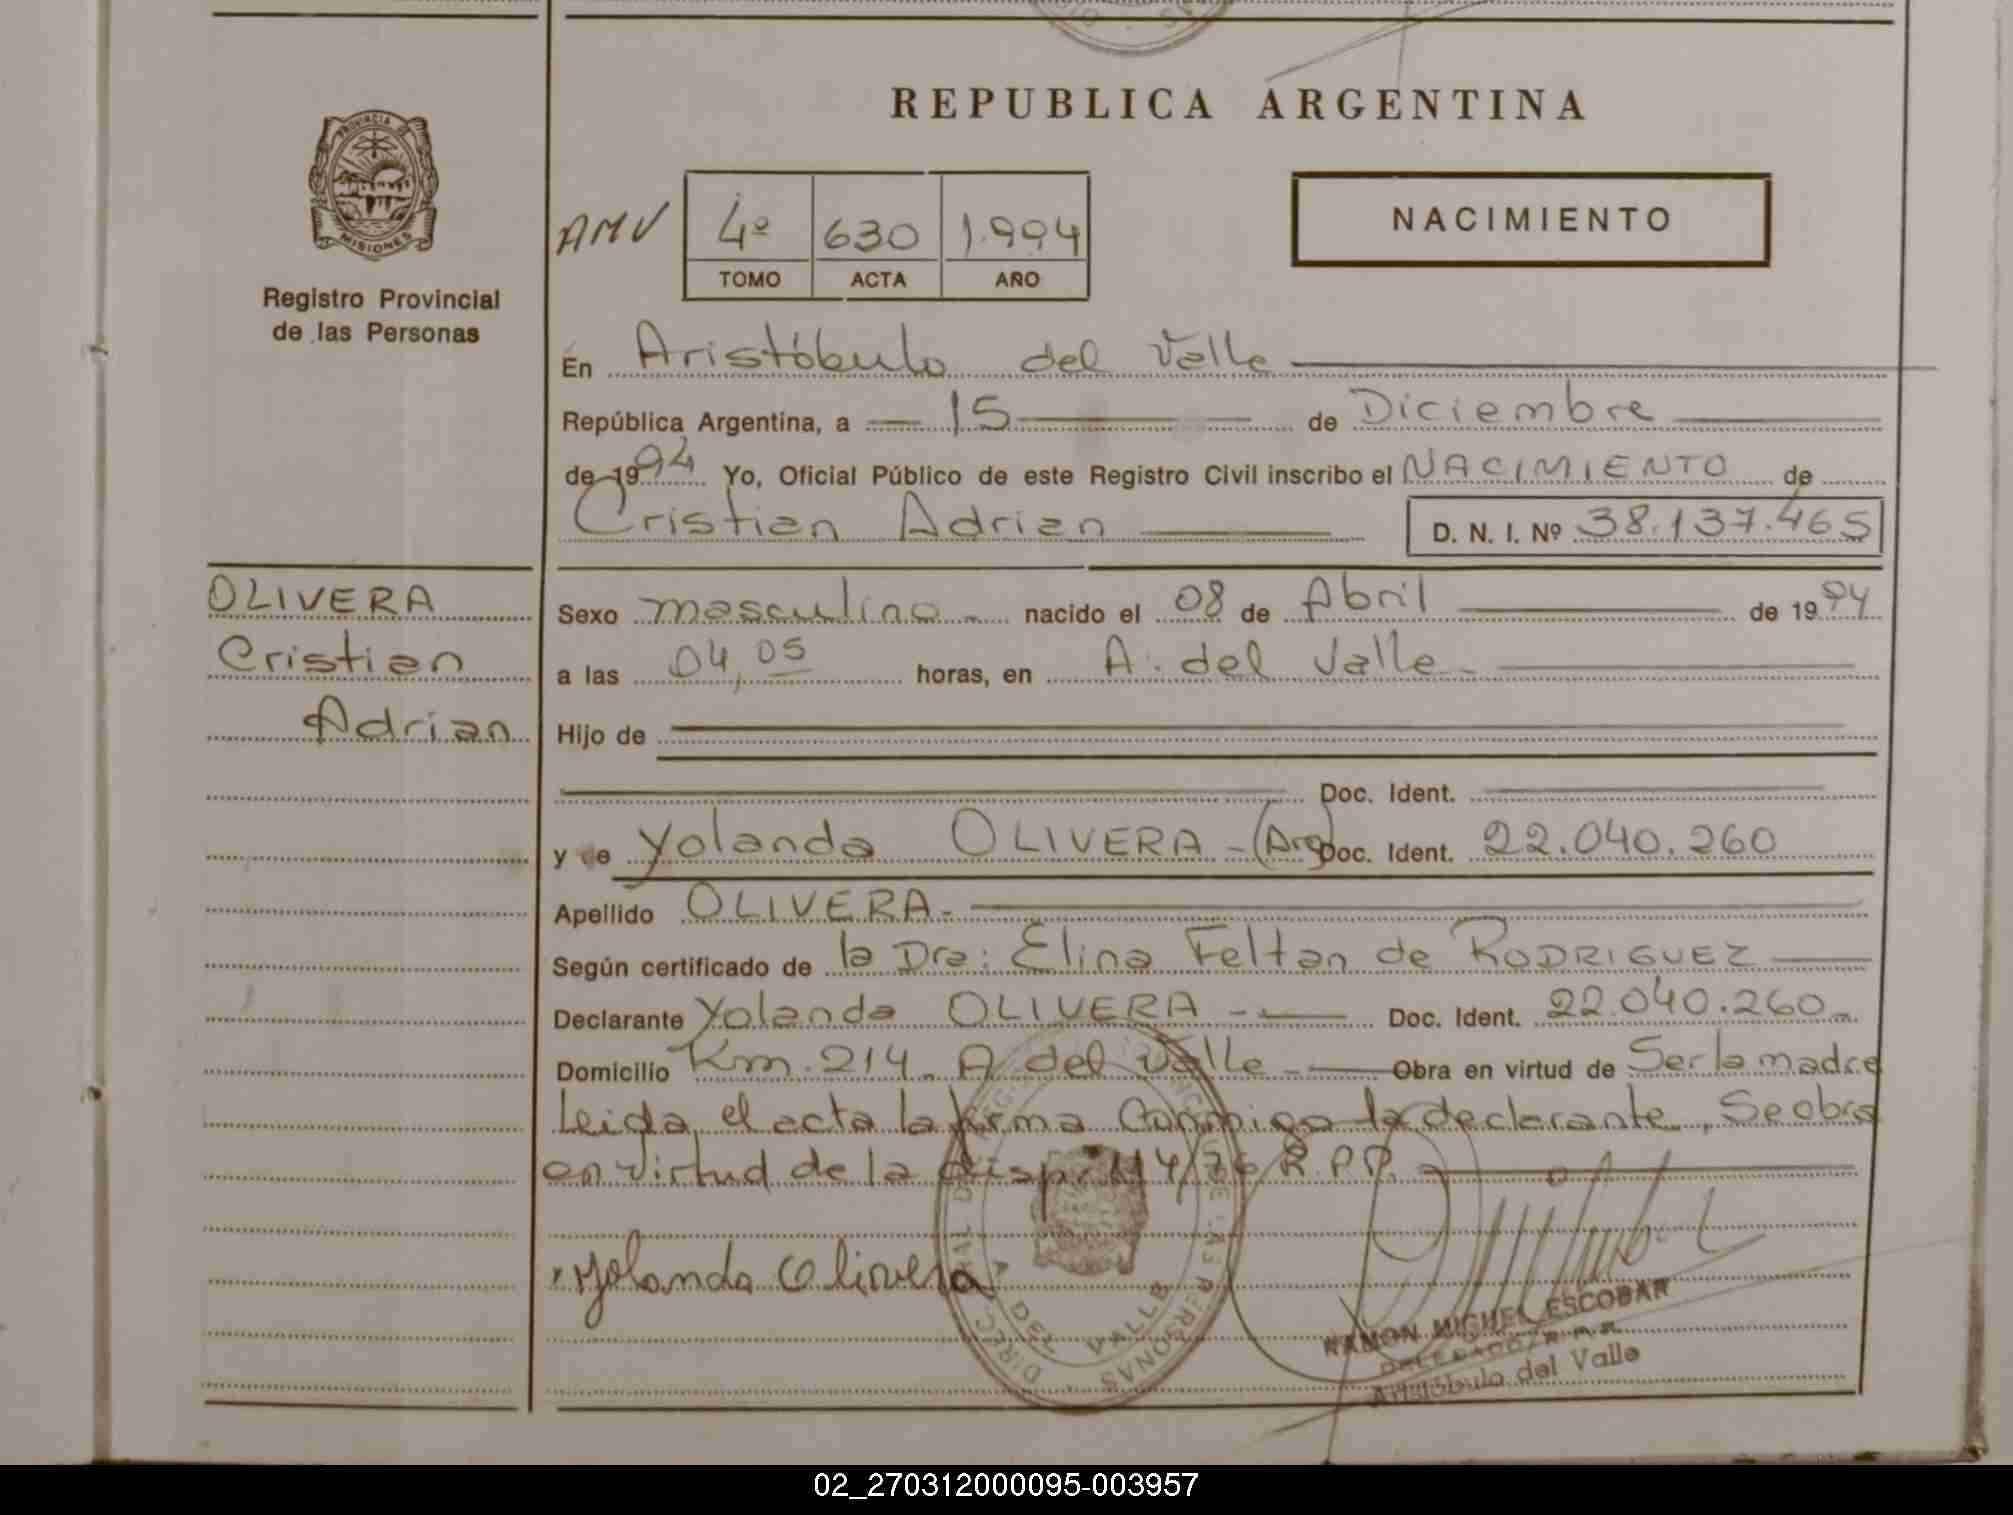 REPUBLICA ARGENTINA
PROVINCIA DE
MISIONES
Registro Provincial
de las Personas
AMV
4º 630 1.994
TOMO ACTA AÑO
NACIMIENTO
En Aristóbulo del Valle
República Argentina, a 15 de Diciembre
de 1994 Yo, Oficial Público de este Registro Civil inscribo el NACIMIENTO de
Cristian Adrian D. N. I. Nº 38.137.465
OLIVERA
Cristian
Adrian
Sexo masculino nacido el 08 de Abril de 1994
a las 04,05 horas, en A. del Valle
Hijo de
Doc. Ident.
y de Yolanda OLIVERA - (Arg) Doc. Ident. 22.040.260
Apellido OLIVERA
Según certificado de la Dra: Elina Feltan de RODRIGUEZ
Declarante Yolanda OLIVERA Doc. Ident. 22.040.260
Domicilio Km. 214 A del Valle Obra en virtud de Ser la madre
Leida el acta la firma Conmigo la declarante, Se obra
en virtud de la disp. 114/76 R.P.P.
Yolanda Olivera
A DEL VALLE
RAMON MIGUEL ESCOBAR
Aristóbulo del Valle
02_270312000095-003957